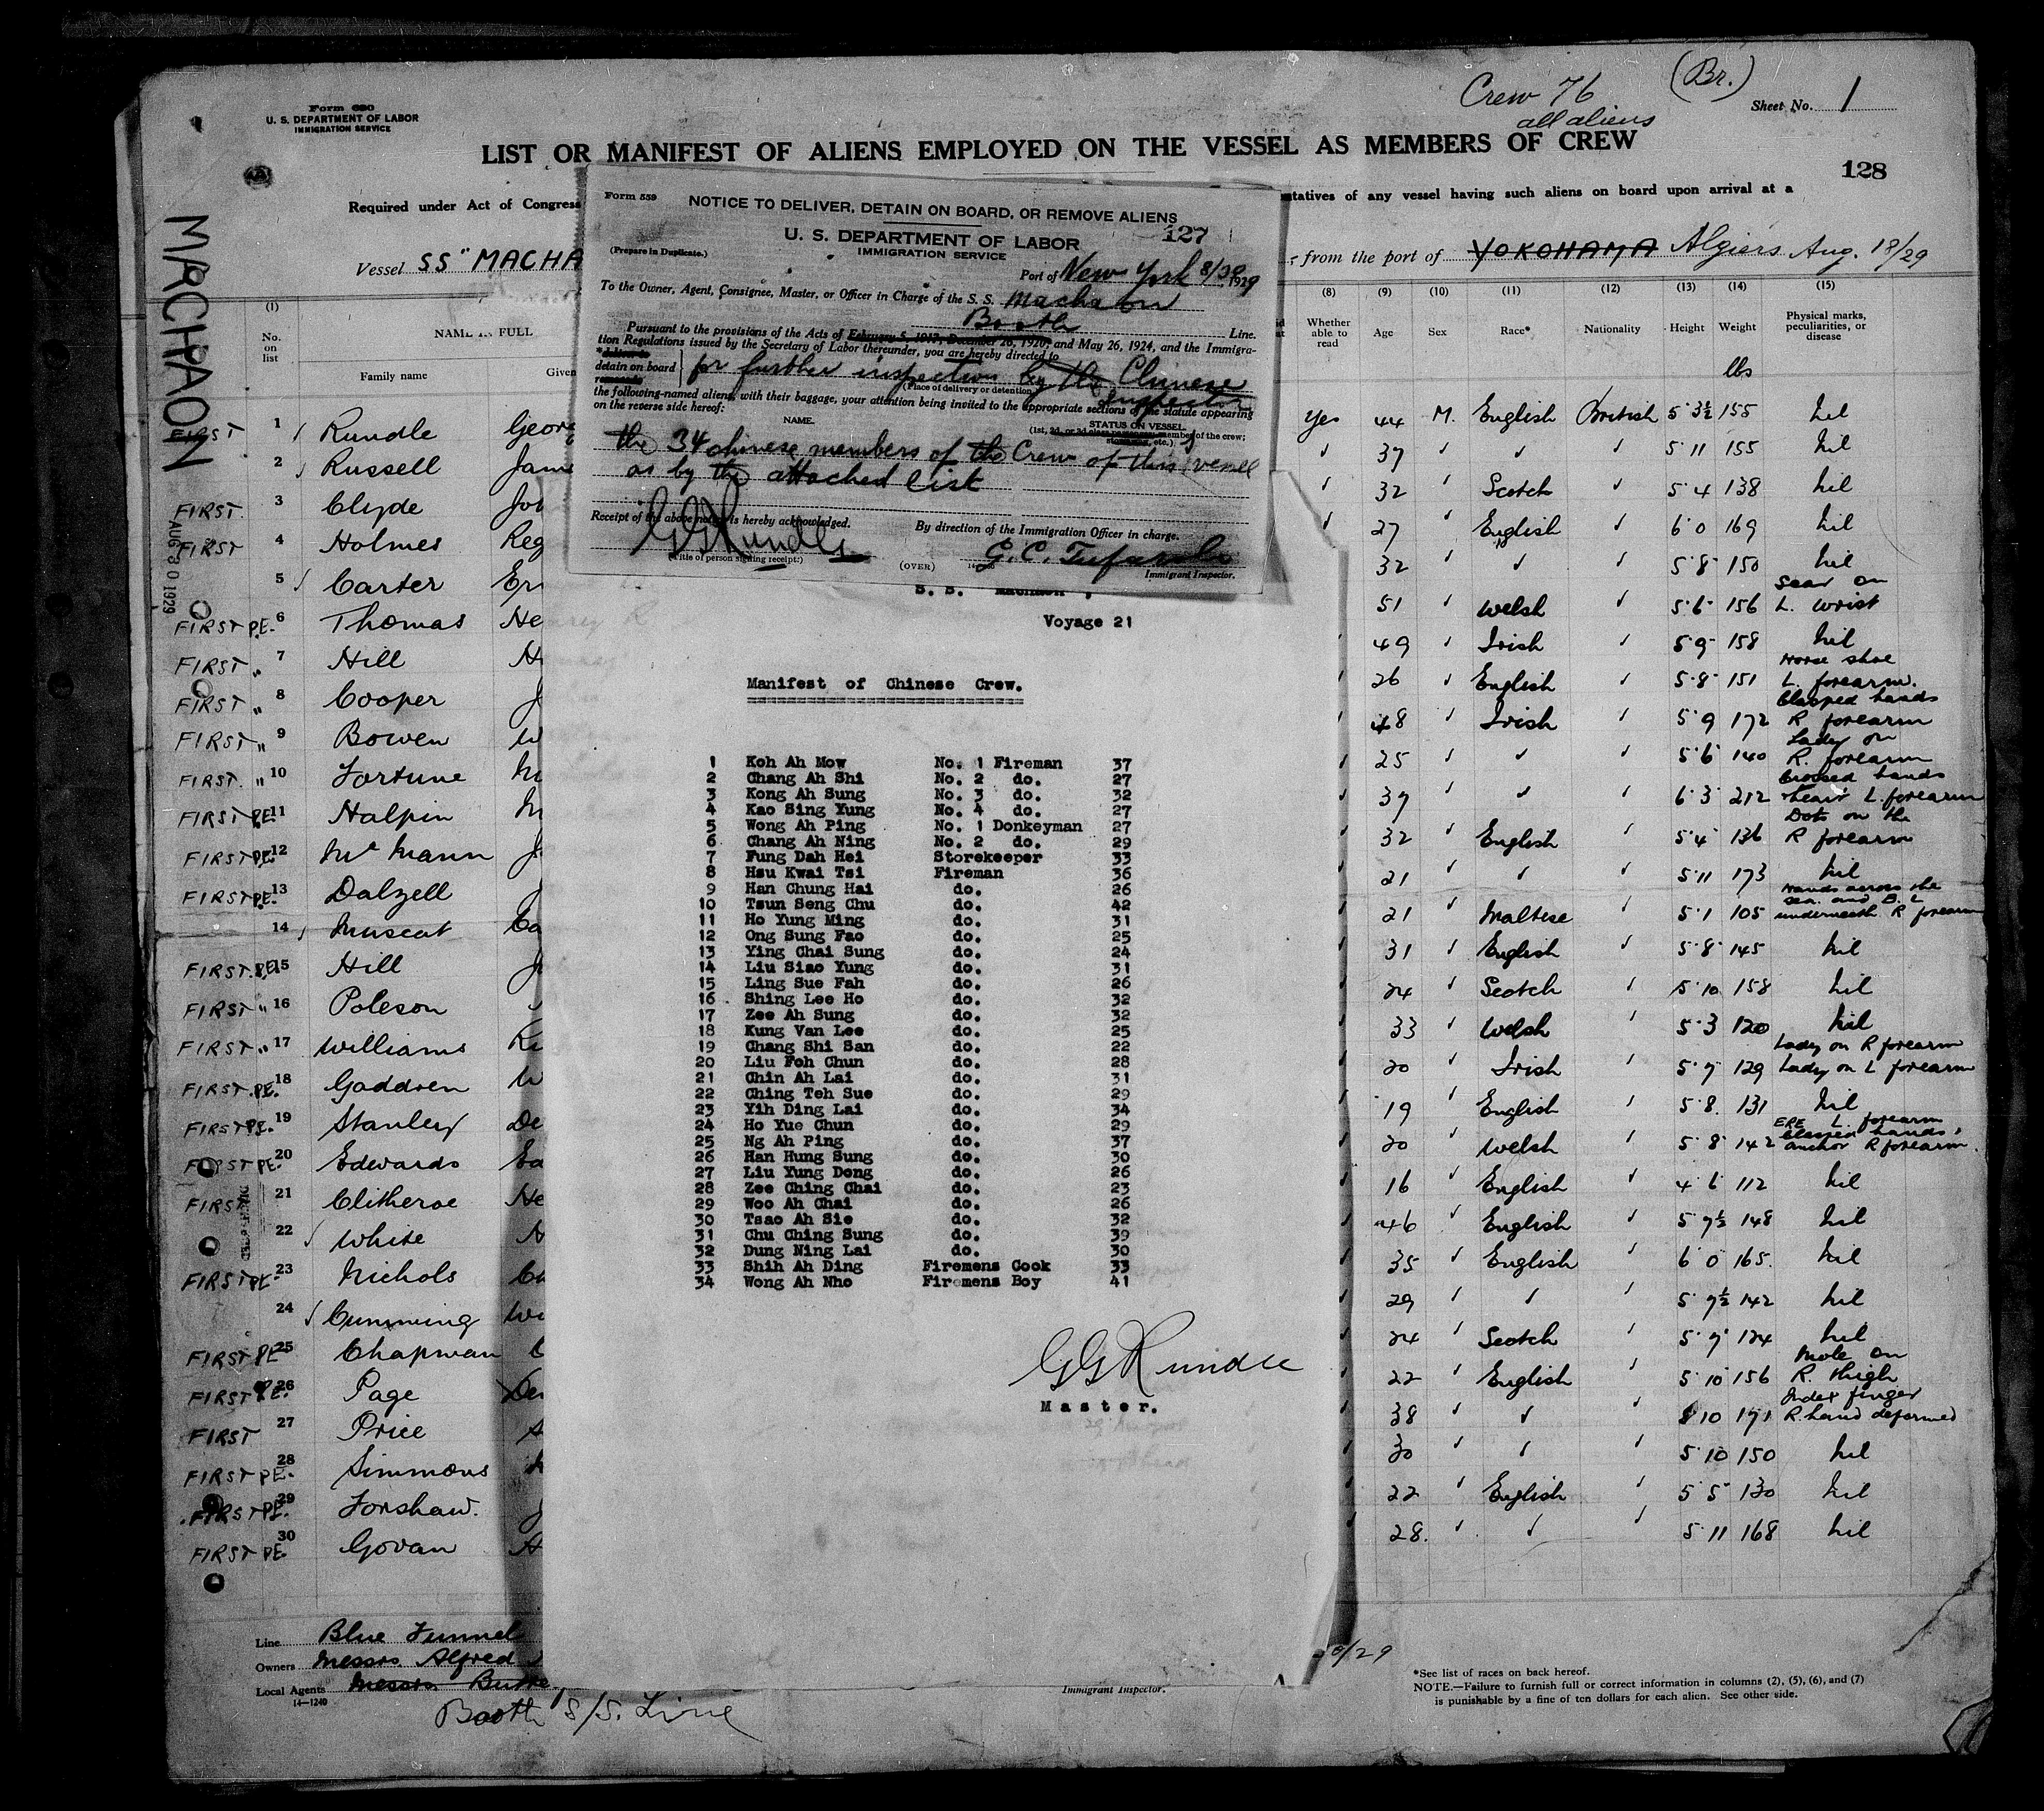 Crew 76
all aliens
(Br.)
Sheet No. 1
Form 680
U. S. DEPARTMENT OF LABOR
IMMIGRATION SERVICE
LIST OR MANIFEST OF ALIENS EMPLOYED ON THE VESSEL AS MEMBERS OF CREW
128
Required under Act of Congress
tatives of any vessel having such aliens on board upon arrival at a
Vessel SS "MACHA
, from the port of YOKOHAMA Algiers Aug. 18/29
MACHAON
AUG 30 1929
Form 559
NOTICE TO DELIVER, DETAIN ON BOARD, OR REMOVE ALIENS
127
U. S. DEPARTMENT OF LABOR
IMMIGRATION SERVICE
(Prepare in Duplicate.)
Port of New York 8/30 1929
To the Owner, Agent, Consignee, Master, or Officer in Charge of the S. S. Machaon
Booth Line.
Pursuant to the provisions of the Acts of February 5, 1917, December 26, 1920, and May 26, 1924, and the Immigra-
tion Regulations issued by the Secretary of Labor thereunder, you are hereby directed to
*deliver to
detain on board
remove to
for further inspection by the Chinese
Inspector
(Place of delivery or detention)
the following-named aliens, with their baggage, your attention being invited to the appropriate sections of the statute appearing
on the reverse side hereof:
NAME.
STATUS ON VESSEL.
(1st, 2d, or 3d class passenger; member of the crew;
stowaway, etc.)
the 34 chinese members of the Crew of this vessel
as by the attached list
Receipt of the above notice is hereby acknowledged.
By direction of the Immigration Officer in charge.
GGRundle
(Title of person signing receipt.)
(OVER)
G. C.
Immigrant Inspector.
(1) (8) (9) (10) (11) (12) (13) (14) (15)
No. on list
NAME IN FULL
Family name
Given
Whether able to read
Age
Sex
Race*
Nationality
Height
Weight
Physical marks, peculiarities, or disease
lbs
FIRST 1 Rundle Geor Yes 44 M. English British 5 3½ 155 nil
2 Russell Jam 37 5 11 155 nil
FIRST 3 Clyde Joh 32 Scotch 5 4 138 nil
FIRST 4 Holmes Reg 27 English 6 0 169 nil
5 Carter Ern 32 5 8 150 nil
FIRST P.E. 6 Thomas He 51 Welsh 5 6 156 Scar on L. wrist
FIRST " 7 Hill H 49 Irish 5 9 158 nil
FIRST " 8 Cooper J 26 English 5 8 151 Horse shoe L. forearm.
FIRST " 9 Bowen W 48 Irish 5 9 172 Clasped hands R forearm
FIRST " 10 Fortune M 25 5 6 140 Lady on R. forearm
FIRST PE 11 Halpin M 37 6 3 212 Crossed hands heart L. forearm
FIRST PE 12 McMann J 32 English 5 4 136 Dots on the R forearm
FIRST P.E. 13 Dalzell J 21 5 11 173 nil
14 Muscat Ca 21 Maltese 5 1 105 Hands across the sea and B. L underneath R forearm
FIRST P.E. 15 Hill J 31 English 5 8 145 nil
FIRST " 16 Poleson 24 Scotch 5 10 158 nil
FIRST " 17 Williams Ri 33 Welsh 5 3 120 nil
FIRST P.E. 18 Gaddren W 20 Irish 5 7 129 Lady on R forearm Lady on L forearm
FIRST P.E. 19 Stanley De 19 English 5 8 131 nil
FIRST P.E. 20 Edwards Ed 20 Welsh 5 8 142 ERE L. forearm clasped hands, anchor R forearm.
FIRST 21 Clitheroe He 16 English 4 6 112 nil
22 White A 46 English 5 7½ 148 nil
FIRST PE 23 Nichols Ch 35 English 6 0 165 nil
24 Cumming Wi 29 5 7½ 142 nil
FIRST PE 25 Chapman C 24 Scotch 5 7 124 nil
FIRST PE 26 Page Den 22 English 5 10 156 Mole on R. thigh
FIRST 27 Price A 38 5 10 171 Index finger R. hand deformed
FIRST PE. 28 Simmons 30 5 10 150 nil
FIRST PE. 29 Forshaw. J 22 English 5 5 130 nil
FIRST PE. 30 Govan A 28. 5 11 168 nil
S. S. "Machaon".
Voyage 21
Manifest of Chinese Crew.
1 Koh Ah Mow No. 1 Fireman 37
2 Chang Ah Shi No. 2 do. 27
3 Kong Ah Sung No. 3 do. 32
4 Kao Sing Yung No. 4 do. 27
5 Wong Ah Ping No. 1 Donkeyman 27
6 Chang Ah Ning No. 2 do. 29
7 Fung Dah Hei Storekeeper 33
8 Hsu Kwai Tsi Fireman 36
9 Han Chung Hai do. 26
10 Tsun Seng Chu do. 42
11 Ho Yung Ming do. 31
12 Ong Sung Fao do. 25
13 Ying Chai Sung do. 24
14 Liu Siao Yung do. 31
15 Ling Sue Fah do. 26
16 Shing Lee Ho do. 32
17 Zee Ah Sung do. 32
18 Kung Van Lee do. 25
19 Chang Shi San do. 22
20 Liu Foh Chun do. 28
21 Chin Ah Lai do. 31
22 Ching Teh Sue do. 29
23 Yih Ding Lai do. 34
24 Ho Yue Chun do. 29
25 Ng Ah Ping do. 37
26 Han Hung Sung do. 30
27 Liu Yung Dong do. 26
28 Zee Ching Chai do. 23
29 Woo Ah Chai do. 26
30 Tsao Ah Sie do. 32
31 Chu Ching Sung do. 39
32 Dung Ning Lai do. 30
33 Shih Ah Ding Firemens Cook 33
34 Wong Ah Nho Firemens Boy 41
GGRundle
Master.
Line Blue Funnel
Owners Messrs. Alfred
Local Agents Messrs
14—1240
Booth S/S. Line
Immigrant Inspector.
/29
*See list of races on back hereof.
NOTE.—Failure to furnish full or correct information in columns (2), (5), (6), and (7)
is punishable by a fine of ten dollars for each alien. See other side.